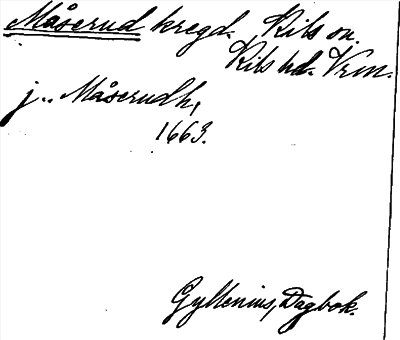 Måserud kregd. Kils sn.
Kils hd. Vrml.
j.. Måserudh,
1663.
Gyllenius, Dagbok.